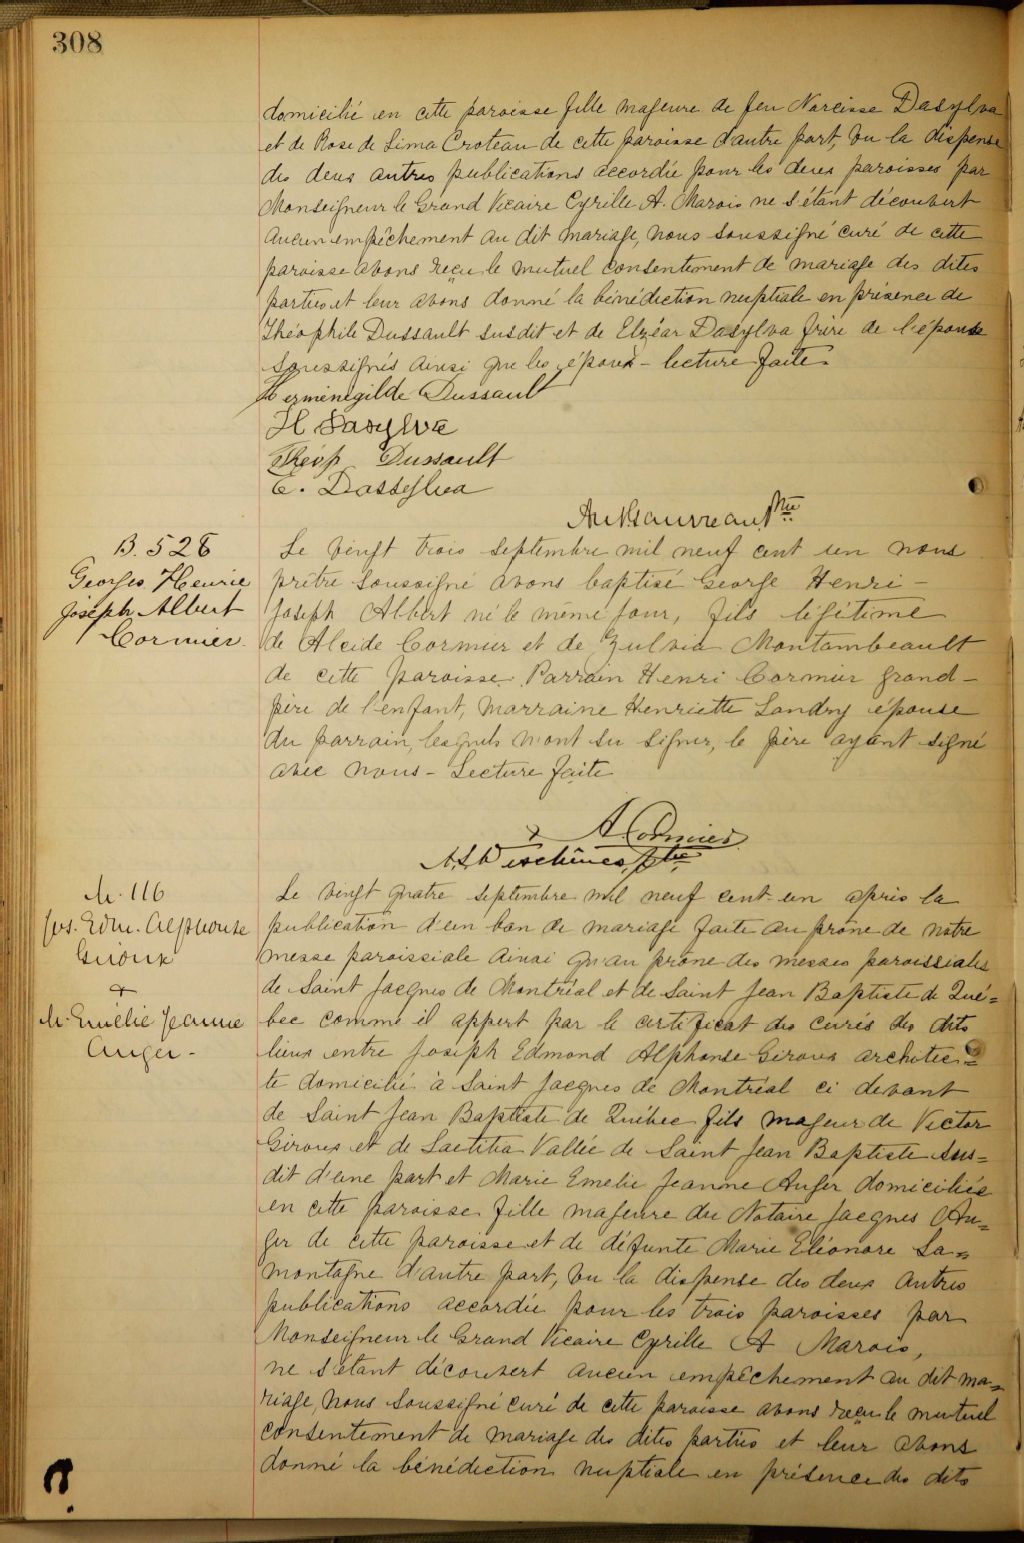 308
domicilié en cette paroisse fille majeure de feu Narcisse Dasylva
et de Rose de Lima Croteau de cette paroisse d'autre part, vu la dispense
des deux autres publications accordée pour les deux paroisses par
Monseigneur le Grand Vicaire Cyrille A. Marois ne s'étant découvert
aucun empêchement au dit mariage, nous soussigné curé de cette
paroisse avons reçu le mutuel consentement de mariage des dites
parties et leur avons donné la bénédiction nuptiale en présence de
Théophile Dussault susdit et de Elzéar Dasylva frère de l'épouse
soussignés ainsi que les époux - lecture faite.
Herménégilde Dussault
H Dasylva
Théop Dussault
E. Dassylva
B. 528
Georges Henrie
Joseph Albert
Cormier.
Le vingt trois septembre mil neuf cent un nous
prêtre soussigné avons baptisé George Henri -
Joseph Albert né le même jour, fils légitime
de Alcide Cormier et de Zulvia Montambeault
de cette paroisse. Parrain Henri Cormier grand-
père de l'enfant, marraine Henriette Landry épouse
du parrain, lesquels n'ont su signer, le père ayant signé
avec nous - Lecture faite
A Cormier
A.L. Deschênes, ptre
M. 116
Jos. Edm. Alphonse
Giroux
&
M. Emélie Jeanne
Auger -
Le vingt quatre septembre mil neuf cent-un après la
publication d'un ban de mariage faite au prône de notre
messe paroissiale ainsi qu'au prône des messes paroissiales
de Saint Jacques de Montréal et de Saint Jean Baptiste de Qué=
bec comme il appert par le certificat des curés des dits
lieux entre Joseph Edmond Alphonse Giroux architec=
te domicilié à Saint Jacques de Montréal ci devant
de Saint Jean Baptiste de Québec fils majeur de Victor
Giroux et de Laetitia Vallée de Saint Jean Baptiste sus=
dit d'une part et Marie Emelie Jeanne Auger domiciliée
en cette paroisse fille majeure du Notaire Jacques Au=
ger de cette paroisse et de défunte Marie Eléonore La=
montagne d'autre part, vu la dispense des deux autres
publications accordée pour les trois paroisses par
Monseigneur le Grand Vicaire Cyrille A Marois,
ne s'étant découvert aucun empêchement au dit ma=
riage, nous soussigné curé de cette paroisse avons reçu le mutuel
consentement de mariage des dites parties et leur avons
donné la bénédiction nuptiale en présence des dits